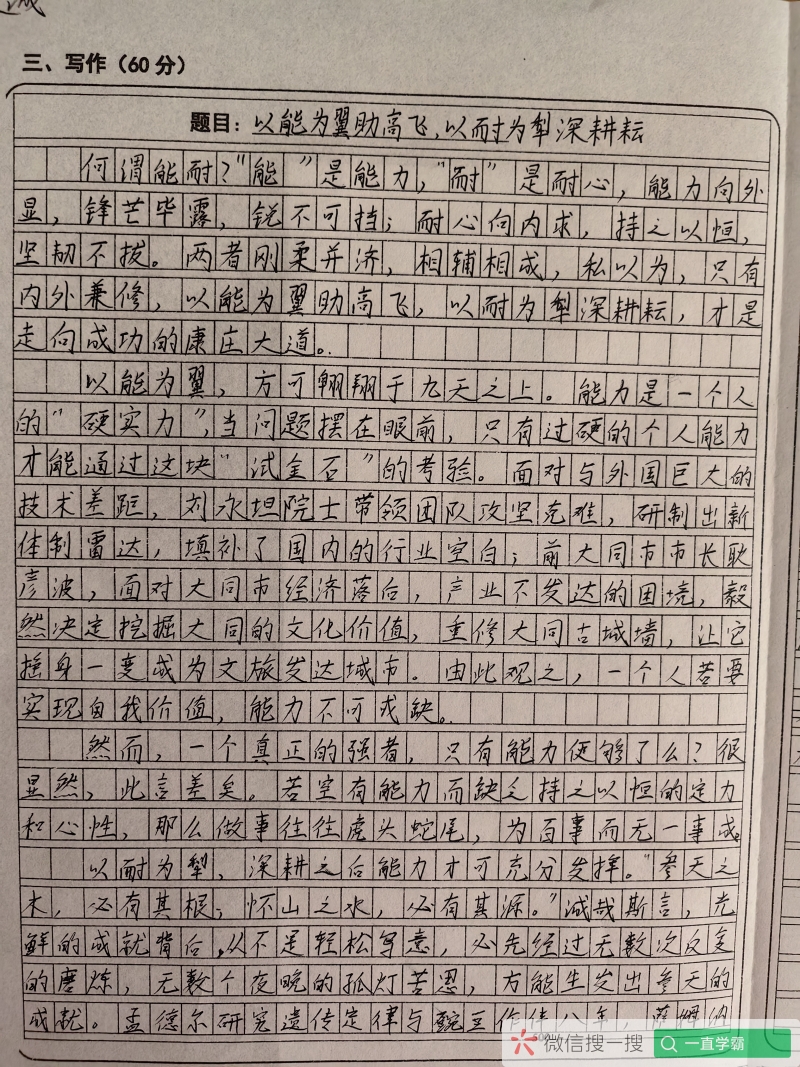 诚
三、写作（60分）
题目：以能为翼助高飞，以耐为犁深耕耘
何谓能耐？“能”是能力，“耐”是耐心，能力向外
显，锋芒毕露，锐不可挡；耐心向内求，持之以恒，
坚韧不拔。两者刚柔并济，相辅相成，私以为，只有
内外兼修，以能为翼助高飞，以耐为犁深耕耘，才是
走向成功的康庄大道。
以能为翼，方可翱翔于九天之上。能力是一个人
的“硬实力”，当问题摆在眼前，只有过硬的个人能力
才能通过这块“试金石”的考验。面对与外国巨大的
技术差距，刘永坦院士带领团队攻坚克难，研制出新
体制雷达，填补了国内的行业空白；前大同市市长耿
彦波，面对大同市经济落后，产业不发达的困境，毅
然决定挖掘大同的文化价值，重修大同古城墙，让它
摇身一变成为文旅发达城市。由此观之，一个人若要
实现自我价值，能力不可或缺。
然而，一个真正的强者，只有能力便够了么？很
显然，此言差矣。若空有能力而缺乏持之以恒的定力
和心性，那么做事往往虎头蛇尾，为百事而无一事成。
以耐为犁，深耕之后能力才可充分发挥。“参天之
木，必有其根；怀山之水，必有其源。”诚哉斯言，光
鲜的成就背后，从不是轻松写意，必先经过无数次反复
的磨炼，无数个夜晚的孤灯苦思，方能生发出参天的
成就。孟德尔研究遗传定律与豌豆作伴八年，
微信搜一搜
一直学霸